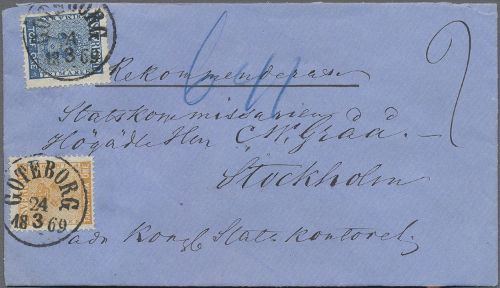 GÖTEBORG
24
18 3 69
Rekommenderas
Statskommissarien
Högädle Herr C. W. Graa.
Stockholm
adr Kongl. Statskontoret.
GÖTEBORG
24
18 3 69